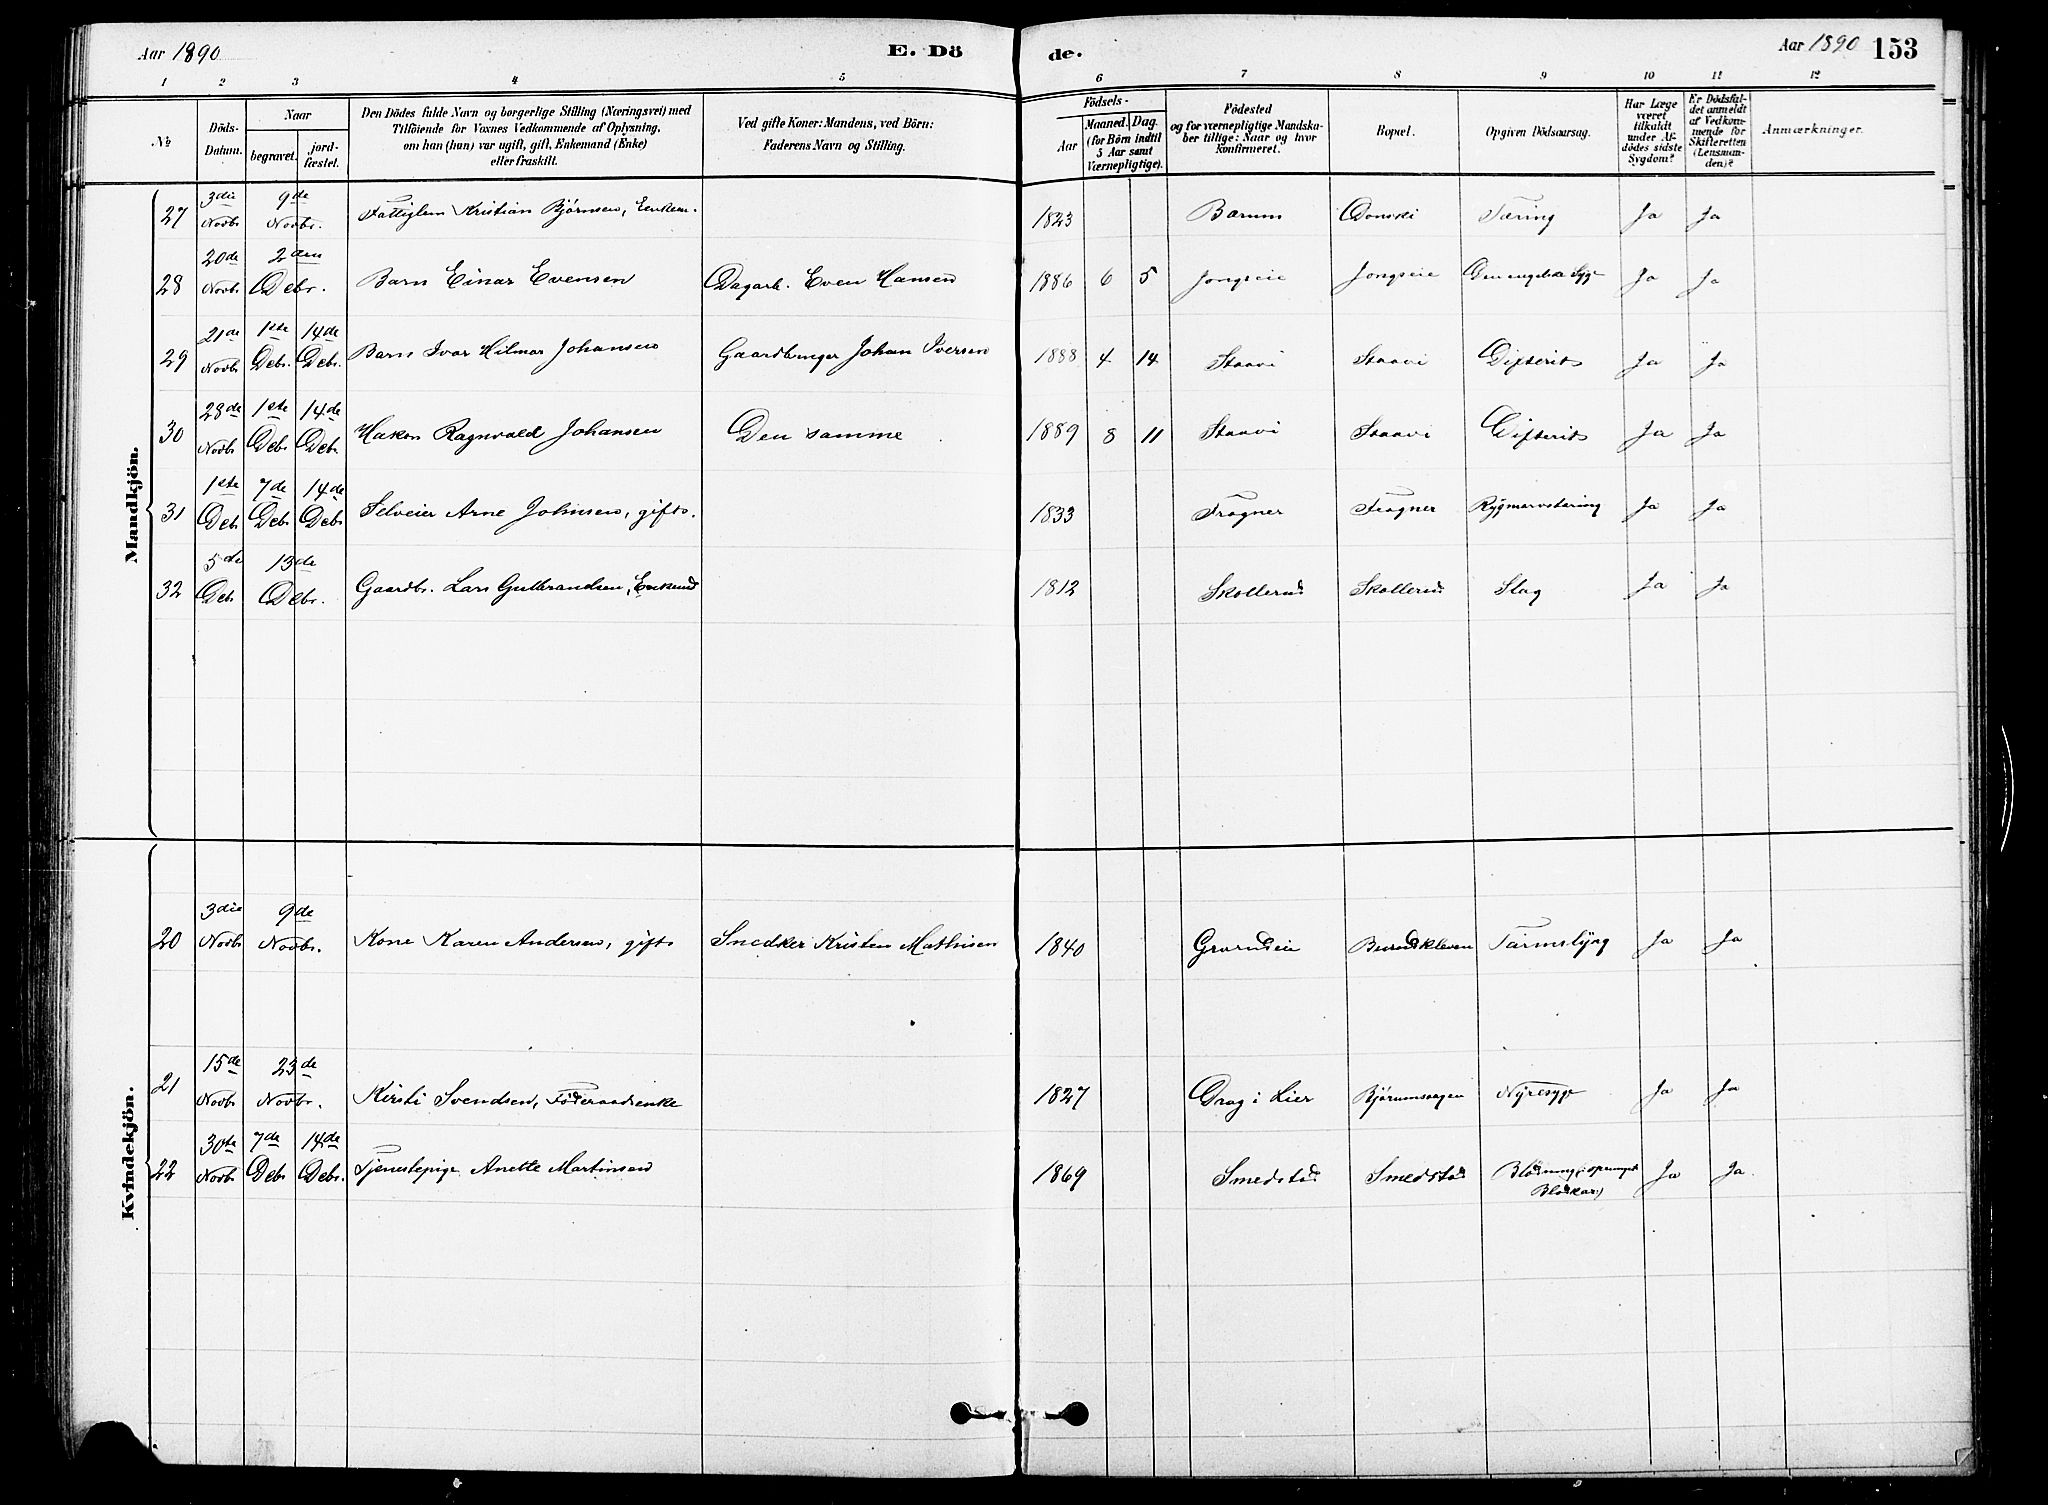 Aar 1890 E. Dö de. Aar 1890 153
1 2 3 4 5 6 7 8 9 10 11 12
№ Döds-Datum. Naar begravet. jordfæstet. Den Dödes fulde Navn og borgerlige Stilling (Næringsvei) med Tilföiende for Voxnes Vedkommende af Oplysning, om han (hun) var ugift, gift, Enkemand (Enke) eller fraskilt. Ved gifte Koner: Mandens, ved Börn: Faderens Navn og Stilling. Födsels- Aar Maaned. Dag. (for Börn indtil 5 Aar samt Værnepligtige). Födested og for værnepligtige Mandskaber tillige: Naar og hvor konfirmeret. Bopæl. Opgiven Dödsaarsag. Har Læge været tilkaldt under Afdödes sidste Sygdom? Er Dödsfaldet anmeldt af Vedkommende for Skifteretten (Lensmanden)? Anmærkninger.
Mandkjön.
27 3die Novbr 9de Novbr. Fattiglem Kristian Bjørnsen, Enkem. 1823 Bærum Donski Tæring Ja Ja
28 20de Novbr 2den Debr. Barn Einar Evensen Dagarb. Even Hansen 1886 6 5 Jongseie Jongseie Den engelske Syge Ja Ja
29 21de Novbr 1ste Debr. 14de Debr. Barn Ivar Hilmar Johansen Gaardbruger Johan Iversen 1888 4 14 Staavi Staavi Difterits Ja Ja
30 28de Novbr 1ste Debr 14de Debr. Hakon Ragnvald Johansen Den samme 1889 8 11 Staavi Staavi Difterits Ja Ja
31 1ste Debr 7de Debr 14de Debr Selveier Arne Johnsen, gift. 1833 Frogner Frogner Rygmarvstæring Ja Ja
32 5de Debr 13de Debr. Gaardbr. Lars Gulbrandsen, Enkemd 1812 Skollerud Skollerud Slag Ja Ja
Kvindekjön.
20 3die Novbr 9de Novbr. Kone Karen Andersen, gift Snedker Kristen Mathisen 1840 Bærendskleven Tarmslyng Ja Ja
21 15de Novbr 23de Novbr. Kirsti Svendsen, Føderaadsenke 1827 Drog i Lier Bjørumsaagen Nyresyge Ja Ja
22 30te Novbr 7de Debr 14de Debr. Tjenestepige Anette Martinsen 1869 Smedstad Smedstad Blødning (: sprunget Blodkar :) Ja Ja.